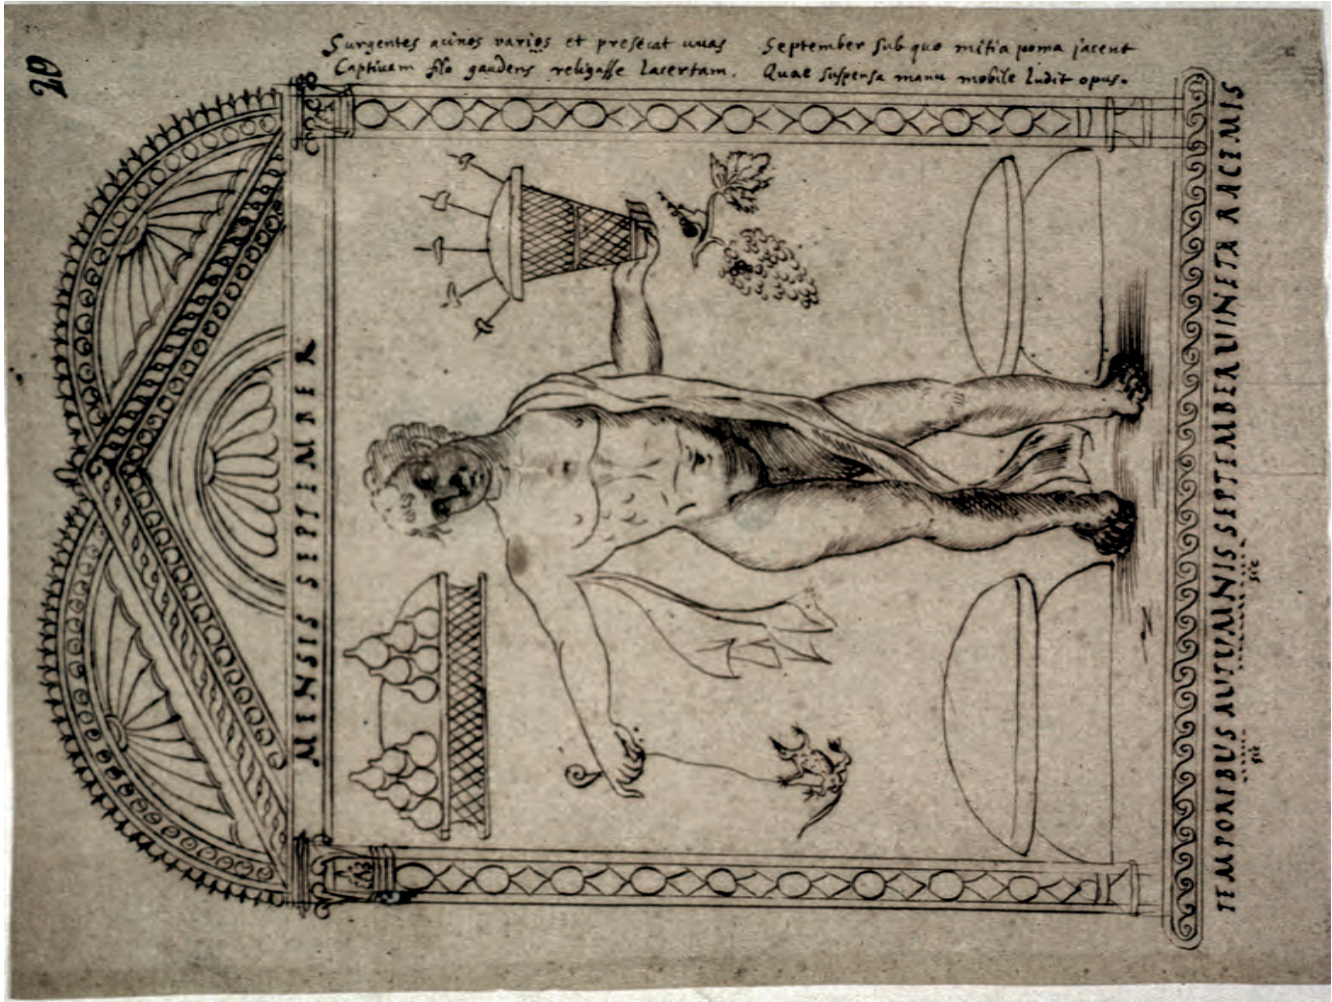 20
Surgentes acinos varios et presecat uvas
Captivam filo gaudens religasse lacertam.
September sub quo mitia poma jacent
Quae suspensa manu mobile ludit opus.
MENSIS SEPTEMBER
TEMPORIBUS AUTUMNIS SEPTEMBER VINETA RACEMIS
sic
sic